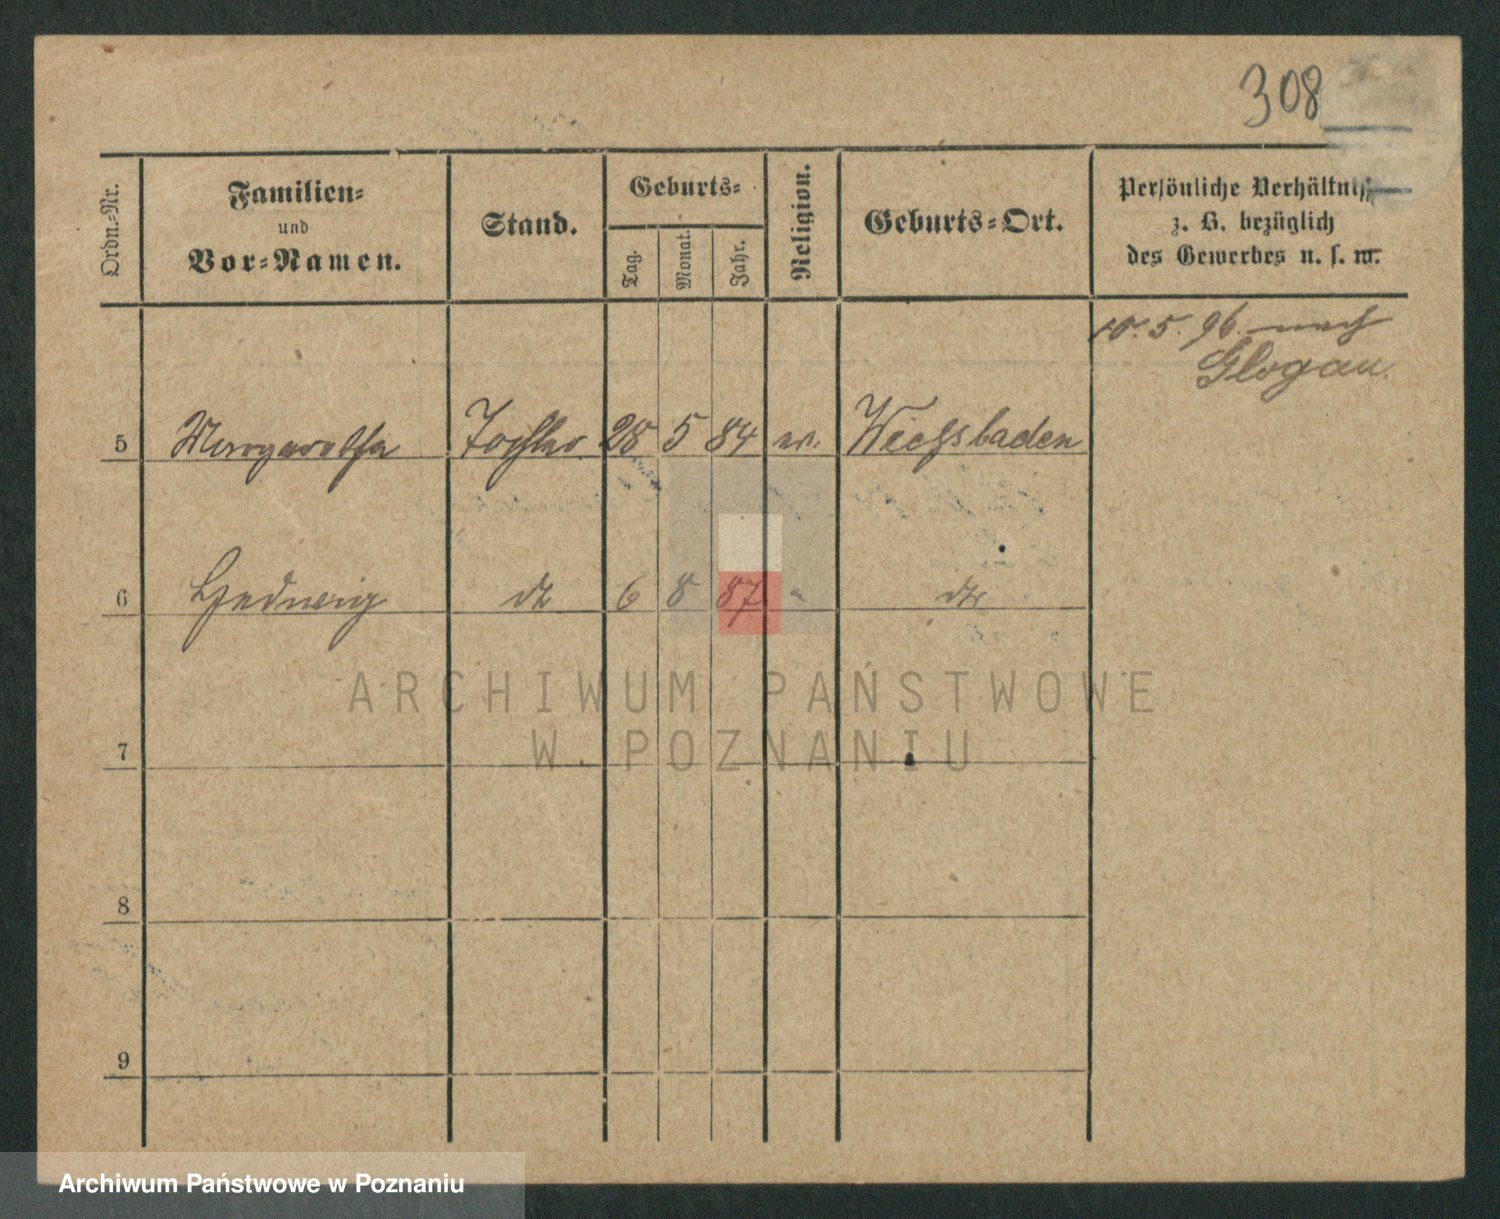 308
Ordn.=Nr.
Familien=
und
Vor=Namen.
Stand.
Geburts=
Tag.
Monat.
Jahr.
Religion.
Geburts=Ort.
Persönliche Verhältnisse
z. B. bezüglich
des Gewerbes u. s. w.
10. 5. 96. nach
Glogau.
5 Margarethe Tochter 28 5 84 ev. Wiesbaden
6 Hedwig dto 6 8 87. " dto
7
8
9
ARCHIWUM PAŃSTWOWE
W POZNANIU
Archiwum Państwowe w Poznaniu